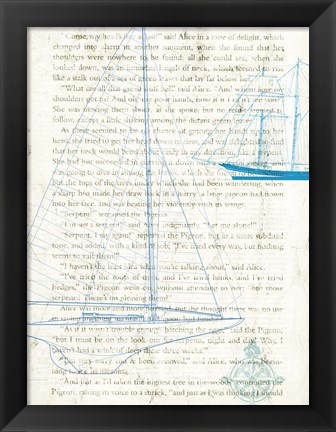 "Come, my head's free at last!" said Alice in a tone of delight, which
changed into alarm in another moment, when she found that her
shoulders were nowhere to be found: all she could see, when she
looked down, was an immense length of neck, which seemed to rise
like a stalk out of a sea of green leaves that lay far below her.
"What can all that green stuff be?" said Alice. "And where have my
shoulders got to? And oh, my poor hands, how is it I can't see you?"
She was moving them about as she spoke, but no result seemed to
follow, except a little shaking among the distant green
As there seemed to be no chance of getting her hands up to her
head, she tried to get her head down to them, and was delighted to find
that her neck would bend about easily in any direction, like a serpent.
She had just succeeded in curving it down
going to dive in among the leaves, which she found to
but the tops of the trees under which she had been wandering, when
a sharp hiss made her draw back in a hurry: a large pigeon had flown
into her face, and was beating her violently with its wings.
"Serpent!" screamed the Pigeon.
"I'm not a serpent!" said Alice indignantly. "Let me alone!"
"Serpent, I say again!" repeated the Pigeon, but in a more subdued
tone, and added, with a kind of sob, "I've tried every way, but nothing
seems to suit them!"
"I haven't the least idea what you're talking about," said Alice.
"I've tried the roots of trees, and I've tried banks, and I've tried
hedges," the Pigeon went on, without attending to her; "but those
serpents! There's no pleasing them!"
Alice was more and more puzzled, but she thought there was no use
in saying anything more till the Pigeon had finished.
"As if it wasn't trouble enough hatching the eggs," said the Pigeon;
"but I must be on the look-out for serpents, night and day! Why, I
haven't had a wink of sleep these three weeks!"
"I'm very sorry you've been annoyed," said Alice, who was begin-
ning to see its meaning.
"And just as I'd taken the highest tree in the wood," continued the
Pigeon, raising its voice to a shriek, "and just as I was thinking I should